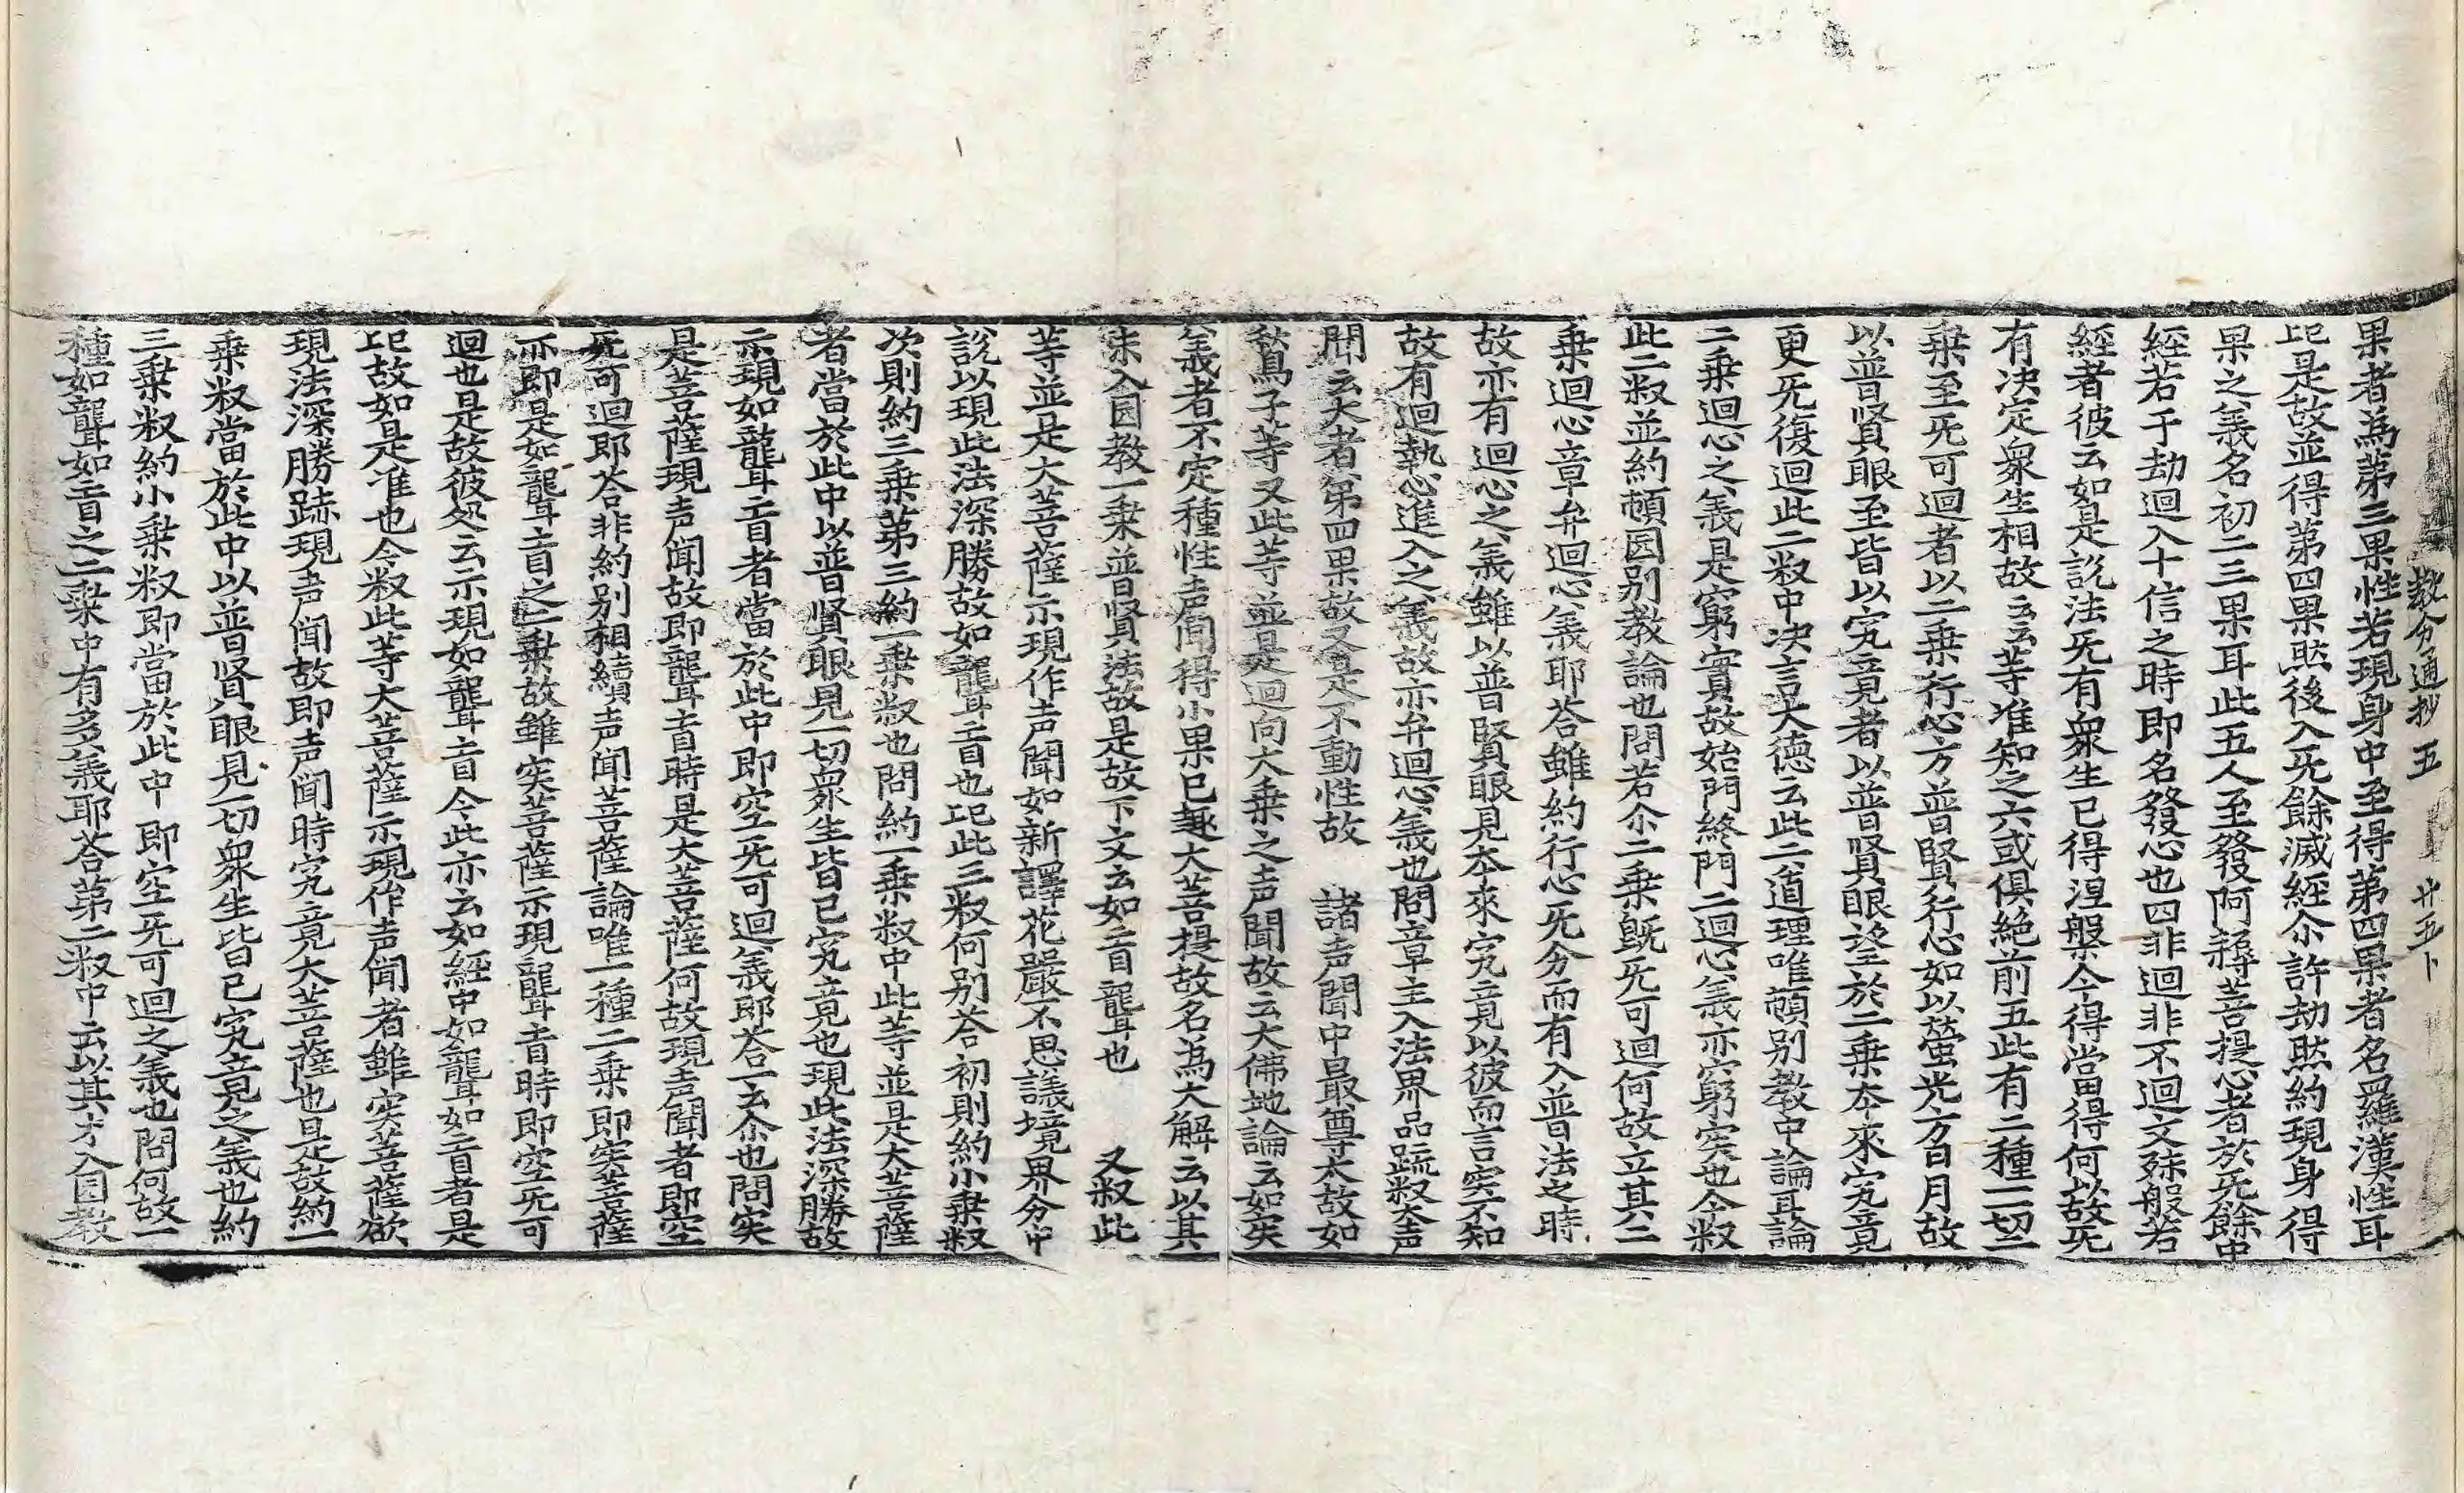 教分通抄 五 廿五卜
果者為第三果性若現身中至得第四果者名羅漢性耳
記是故並得第四果㸐後入旡餘滅經尒許劫㸐約現身得
果之義名初二三果耳此五人至發阿耨菩提心者於旡餘中
經若干劫迴入十信之時即名發心也四非迴非不迴文殊般若
經者彼云如是說法旡有衆生已得涅槃今得當得何以故旡
有决定衆生相故云云等准知之六或俱絶前五此有二種一切二
乗至旡可迴者以二乗行心方普賢行心如以螢光方日月故
以普賢眼至皆以究竟者以普賢眼望於二乗夲來究竟
更旡復迴此二叙中决言大德云此二道理唯頓別教中論耳論
二乗迴心之義是窮實故始門終門二迴心義亦窮実也今叙
此二叙並約頓囸别教論也問若尒二乗既旡可迴何故立其二
乗迴心章弁迴心義耶荅雖約行心旡分而有入普法之時
故亦有迴心之義雖以普賢眼見夲來究竟以彼而言実不知
故有迴執心進入之義故亦弁迴心義也問章主入法界品䟽叙大声
聞云大者第四果故又是不動性故 諸声聞中最尊大故如
鶖鳥子等又此等並是迴向大乗之声聞故云大佛地論云如実
義者不定種性声聞得小果已趣大菩提故名為大解云以其
未入囸教一乗並普賢法故是故下文云如盲聾也 又叙此
等並是大菩薩示現作声聞如新譯花嚴不思議境界分中
說以現此法深勝故如聾盲也記此三叙何別荅初則約小乗叙
次則約三乗第三約一乗叙也問約一乗叙中此等並是大菩薩
者當於此中以普賢眼見一切衆生皆已究竟也現此法深勝故
示現如聾盲者當於此中即空旡可迴義耶荅一云尒也問実
是菩薩現声聞故即聾盲時是大菩薩何故現声聞者即空
旡可迴耶荅非約別相續声聞菩薩論唯一種二乗即実菩薩
亦即是如聾盲之二乗故雖実菩薩示現聾盲時即空旡可
迴也是故彼处云示現如聾盲今此亦云如經中如聾如盲者是
記故如是准也今叙此等大菩薩示現作声聞者雖実菩薩欲
現法深勝跡現声聞故即声聞時究竟大菩薩也是故約一
乗叙當於此中以普賢眼見一切衆生皆已究竟之義也約
三乗叙約小乗叙即當於此中 即空旡可迴之義也問何故一
種如聾如盲之二乗中有多義耶荅第二叙中云以其才入囸教